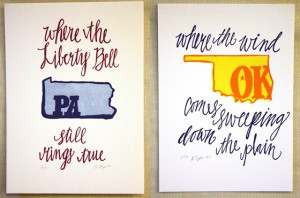 where the
Liberty Bell
PA
still
rings true
where the wind
OK
comes sweeping
down the plain